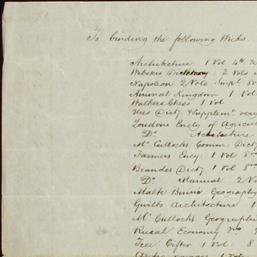 To binding the following Works.
Architecture 1 Vol 4to
Websters Dictionary 2 Vols
Napoleon 2 Vols
Animal Kingdom 1 Vol
Walkers Chess 1 Vol
Ures Dicty & Supplemt very
Loudons Encly of Agricul
Do. Architecture
Mc Cullochs Comm. Dicty
Farmers Ency. 1 Vol 8
Brandes Dicty 1 Vol 8
Do. Manual 2 Vo
Malte Bruns Geography
Guilts Architecture 1
Mc Cullochs Geographi
Rural Economy
1 Vol. 8
1 Vol